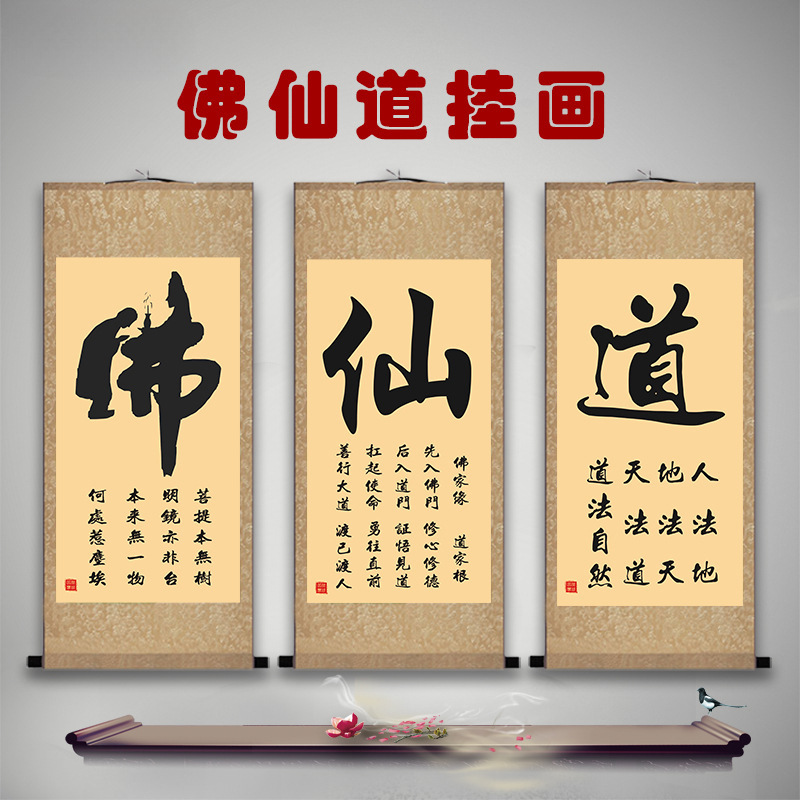 佛仙道挂画
佛
菩提本無樹
明鏡亦非台
本来無一物
何處惹塵埃
仙
佛家緣 道家根
先入佛門 修心修德
后入道門 証悟見道
扛起使命 勇往直前
善行大道 渡己渡人
道
人法地
地法天
天法道
道法自然